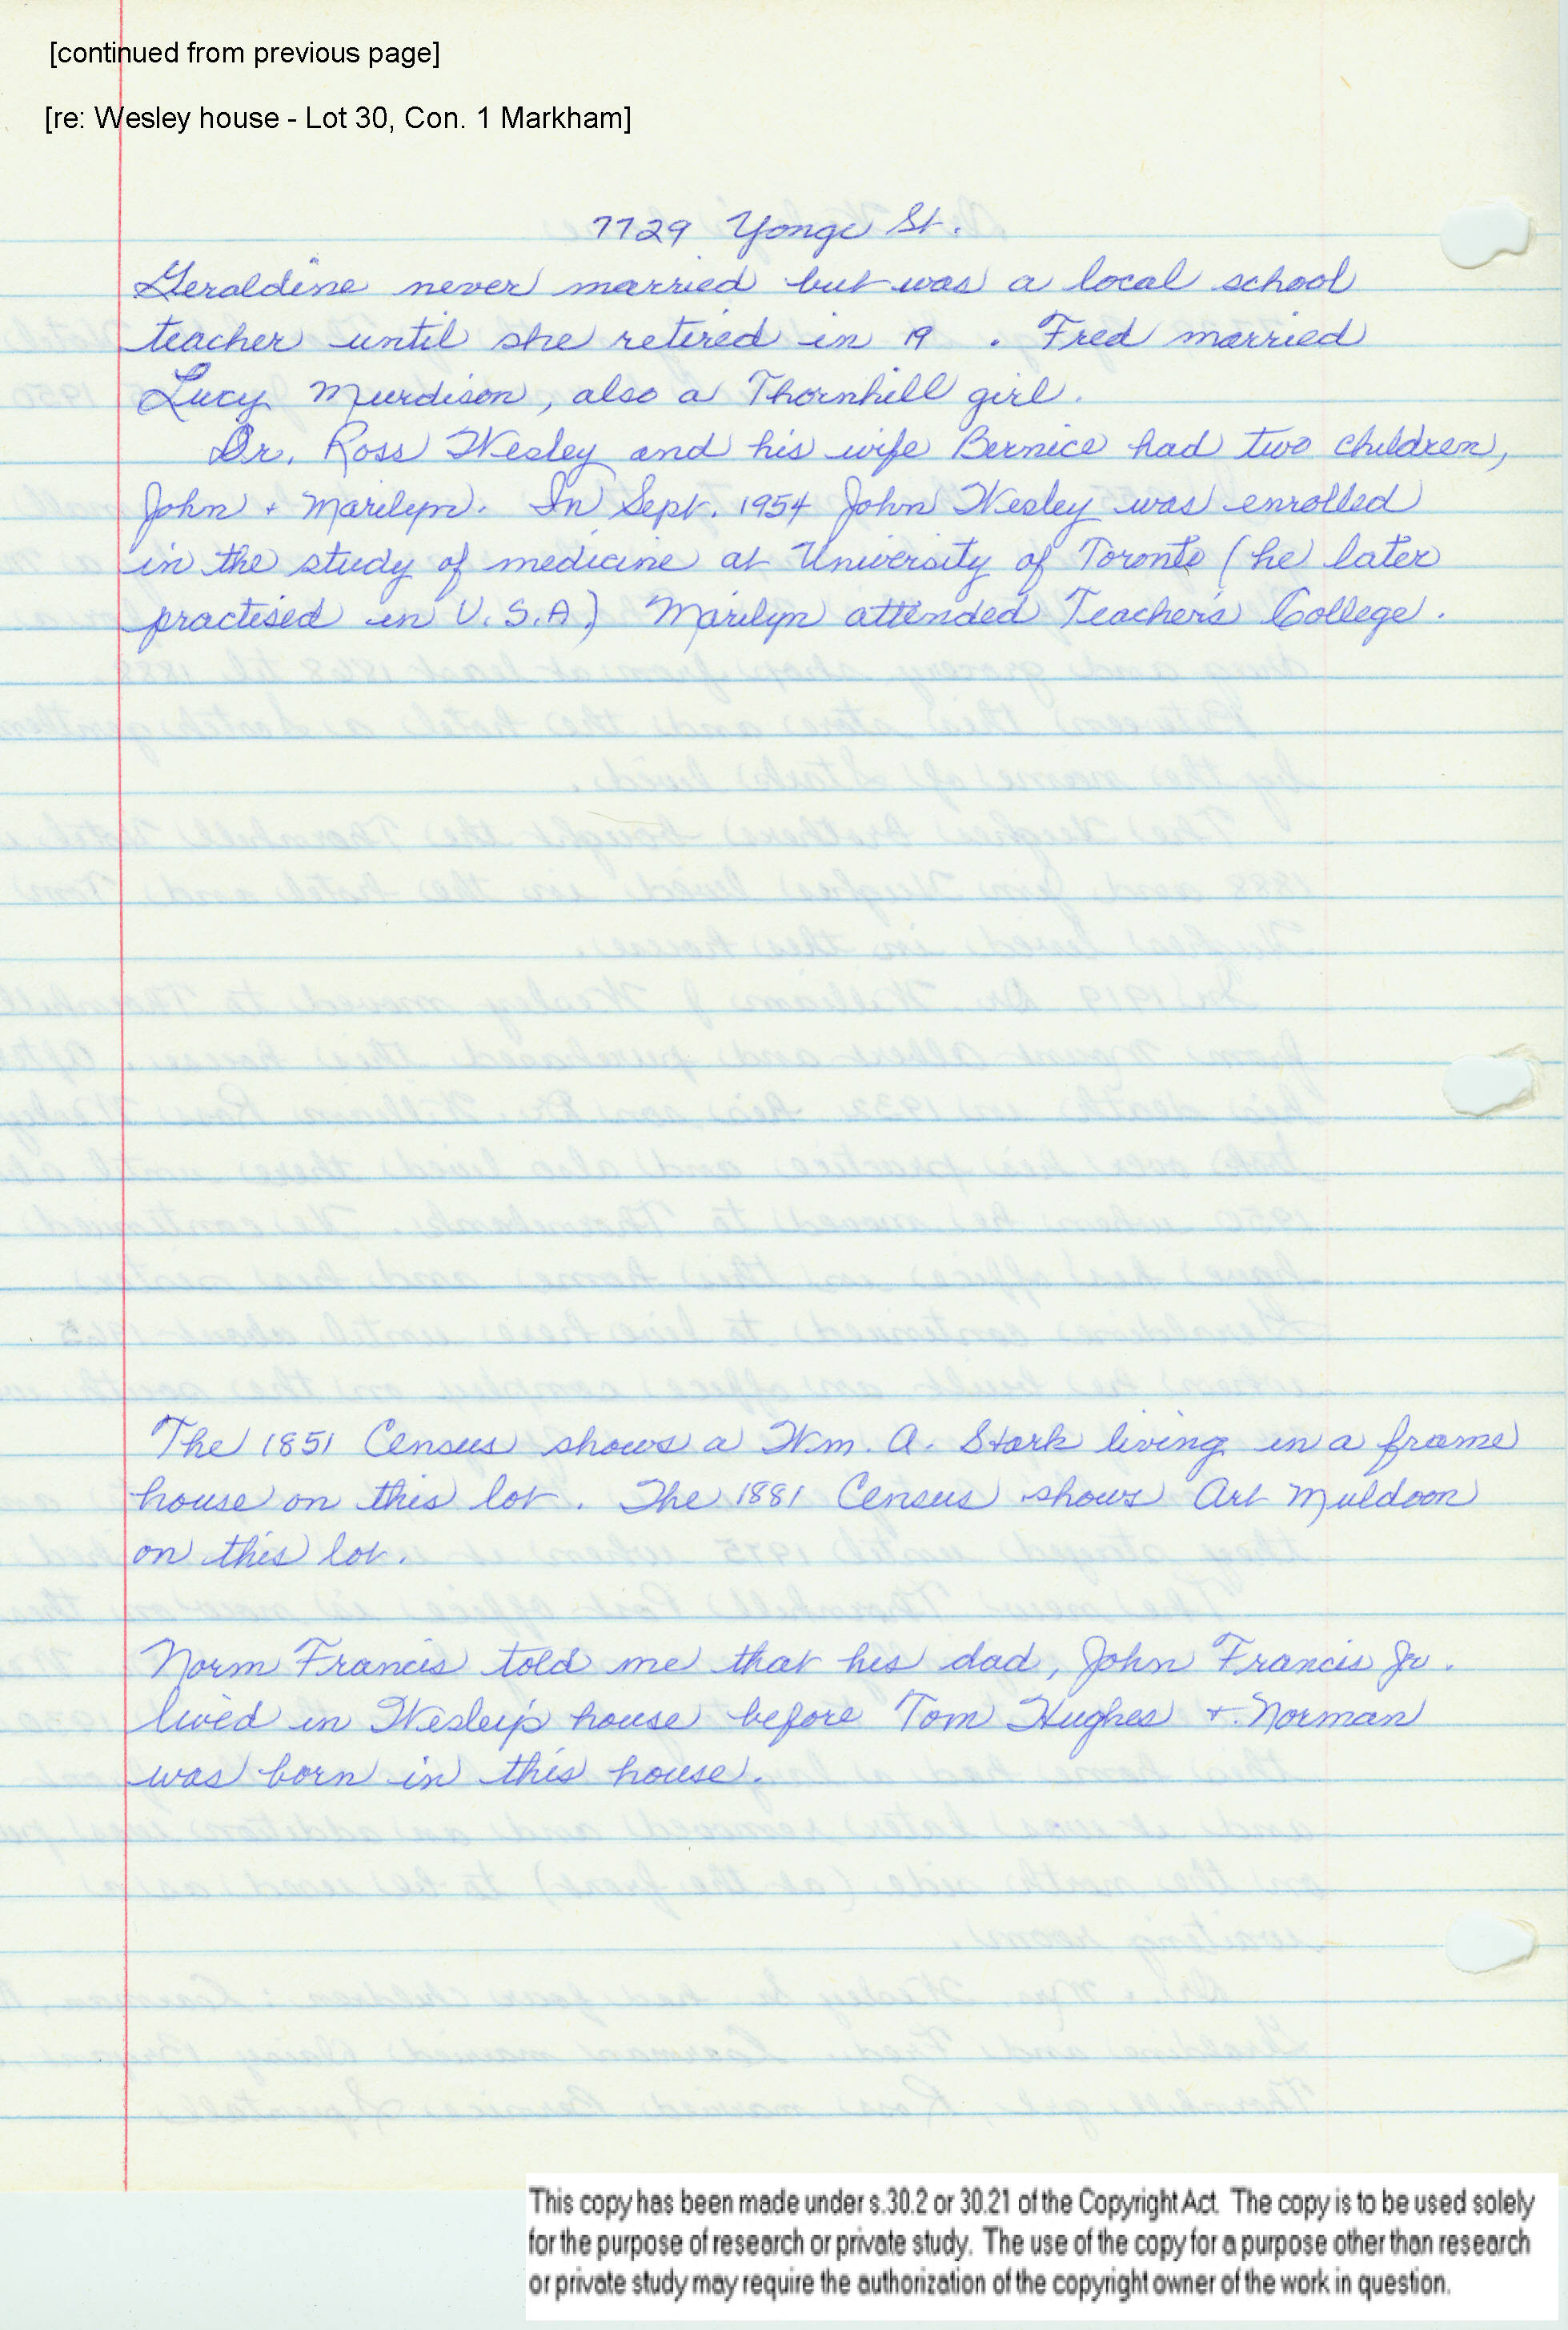 [continued from previous page]
[re: Wesley house - Lot 30, Con. 1 Markham]
7729 Yonge St.
Geraldine never married but was a local school
teacher until she retired in 19   . Fred married
Lucy Murdison, also a Thornhill girl.
Dr. Ross Wesley and his wife Bernice had two children,
John + Marilyn. In Sept. 1954 John Wesley was enrolled
in the study of medicine at University of Toronto (he later
practised in U.S.A.) Marilyn attended Teacher's College.
The 1851 Census shows a Wm. A. Stark living in a frame
house on this lot. The 1881 Census shows Art Muldoon
on this lot.
Norm Francis told me that his dad, John Francis Jr.
lived in Wesley's house before Tom Hughes + Norman
was born in this house.
This copy has been made under s.30.2 or 30.21 of the Copyright Act. The copy is to be used solely
for the purpose of research or private study. The use of the copy for a purpose other than research
or private study may require the authorization of the copyright owner of the work in question.